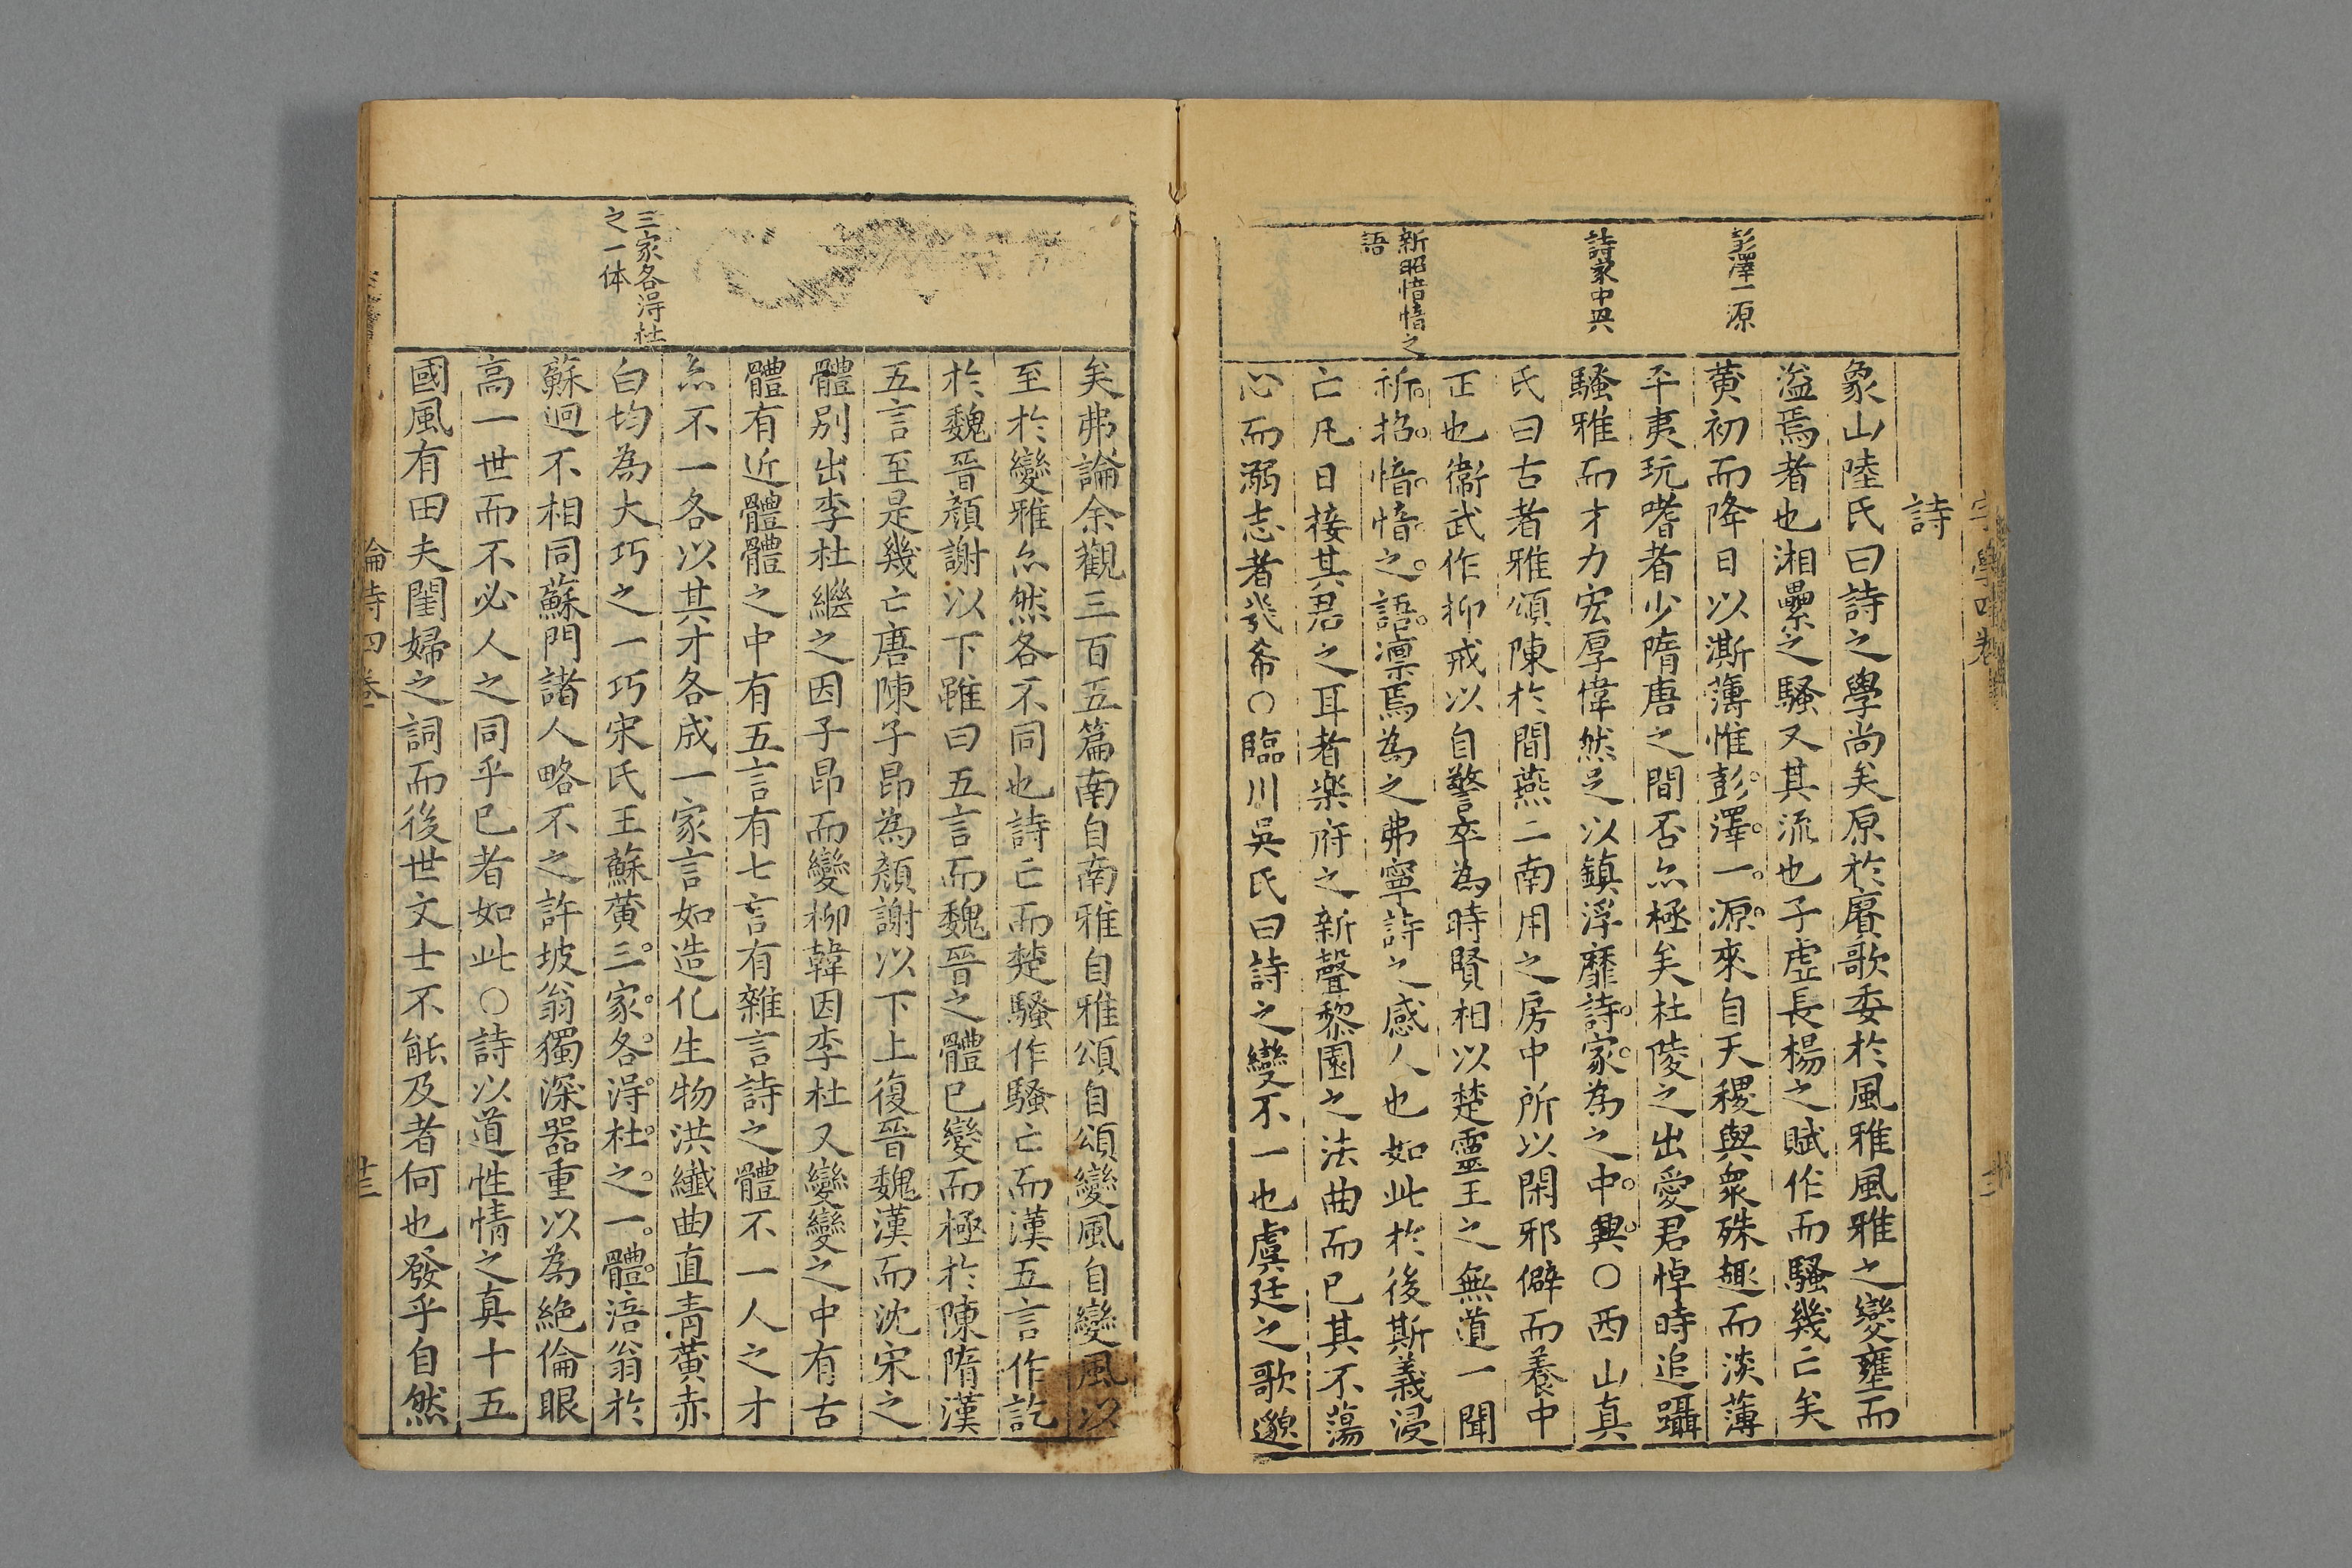 彭澤一源
詩家中興
新昭愔愔之
語
詩
象山陸氏曰詩之學尚矣原於賡歌委於風雅風雅之變壅而
溢焉者也湘纍之騷又其流也子虛長楊之賦作而騷幾亡矣
黃初而降日以澌薄惟彭澤一源來自天稷與衆殊趣而淡薄
平夷玩嗜者少隋唐之間否亦極矣杜陵之出愛君悼時追躡
騷雅而才力宏厚偉然足以鎮浮靡詩家為之中興○西山真
氏曰古者雅頌陳於間燕二南用之房中所以閑邪僻而養中
正也衞武作抑戒以自警卒為時賢相以楚靈王之無道一聞
祈招愔愔之語凛焉為之弗寧詩之感人也如此於後斯義浸
亡凡日接其君之耳者樂府之新聲黎園之法曲而已其不蕩
心而溺志者㡬希○臨川吳氏曰詩之變不一也虞廷之歌邈
三家各淂杜
之一体
矣弗論余觀三百五篇南自南雅自雅頌自頌變風自變風以
至於變雅亦然各不同也詩亡而楚騷作騷亡而漢五言作訖
於魏晉顏謝以下雖曰五言而魏晉之體已變而極於陳隋漢
五言至是幾亡唐陳子昂為顏謝以下上復晉魏漢而沈宋之
體別出李杜繼之因子昂而變柳韓因李杜又變變之中有古
體有近體體之中有五言有七言有雜言詩之體不一人之才
亦不一各以其才各成一家言如造化生物洪纖曲直青黃赤
白均為大巧之一巧宋氏王蘇黃三家各淂杜之一體涪翁於
蘇迥不相同蘇門諸人略不之許坡翁獨深噐重以為絕倫眼
高一世而不必人之同乎已者如此○詩以道性情之真十五
國風有田夫閨婦之詞而後世文士不能及者何也發乎自然
論詩四卷
廿三